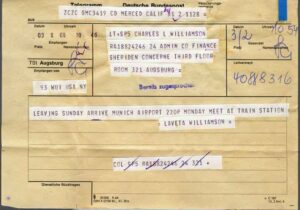 Telegramm Deutsche Bundespost
ZCZC GMC3459 CD MERCED CALIF 2-1128
LT=SP5 CHARLES L WILLIAMSON
RA18824246 24 ADMIN CO FINANCE
SHERIDEN CONCERNE THIRD FLOOR
ROOM 321 AUGSBURG
TSt Augsburg
Bereits zugesprochen
40818316
LEAVING SUNDAY ARRIVE MUNICH AIRPORT 220P MONDAY MEET AT TRAIN STATION
LAVETA WILLIAMSON
COL SP5 RA18824246 24 321
Dienstliche Rückfragen